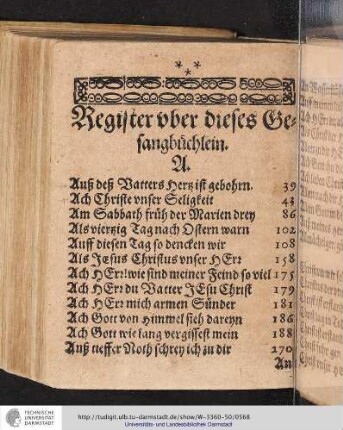 Register vber dieses Ge-
sangbüchlein.
A.
Auß deß Vatters Hertz ist gebohrn. 39
Ach Christe vnser Seligkeit 43
Am Sabbath früh der Marien drey 86
Als viertzig Tag nach Ostern warn 102
Auff diesen Tag so dencken wir 108
Als Jesus Christus vnser HErr 158
Ach HErr! wie sind meiner Feind so viel 175
Ach HErr du Vatter JEsu Christ 179
Ach HErr mich armen Sünder 181
Ach Gott von Himmel sieh dareyn 186
Ach Gott wie lang vergissest mein 188
Auß tieffer Noth schrey ich zu dir 270
An
TECHNISCHE
UNIVERSITÄT
DARMSTADT
http://tudigit.ulb.tu-darmstadt.de/show/W-3360-50/0568
Universitäts- und Landesbibliothek Darmstadt
ULB